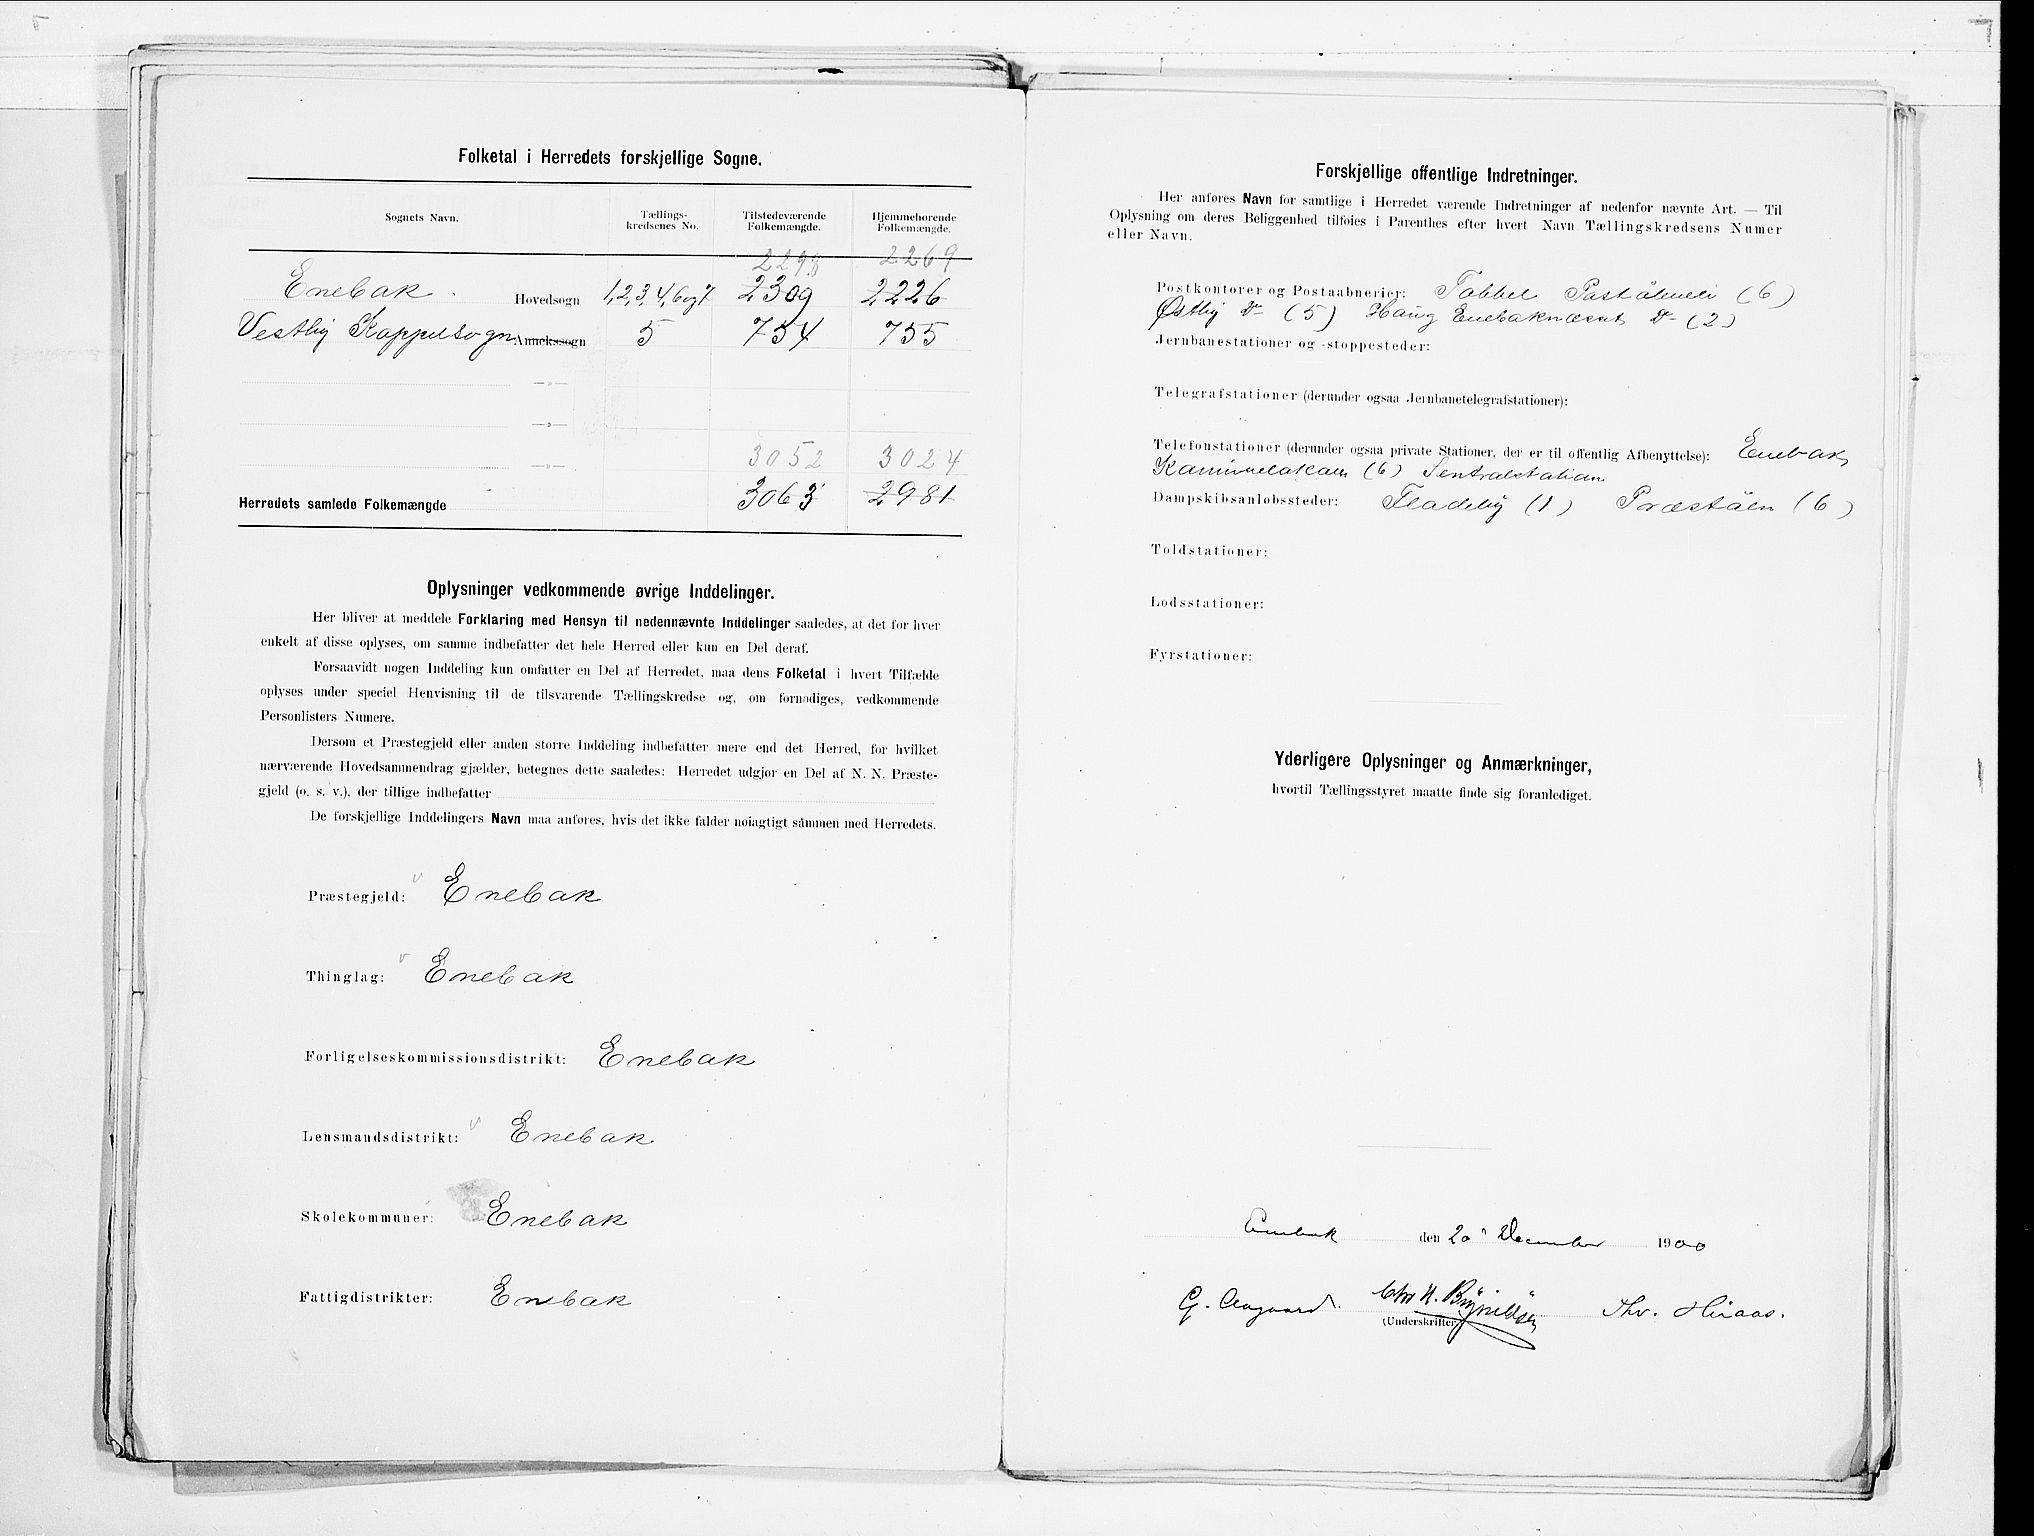 Folketal i Herredets forskjellige Sogne.
Sognets Navn.
Tællings-
kredsenes No.
Tilstedeværende
Folkemængde.
Hjemmehørende
Folkemængde.
2298 2269
Enebak. Hovedsogn 1,2,3,4,6og7 2309 2226
Vestby Kappelsogn Annekssogn 5 754 755
—»—
—»—
—»— 3052 3024
Herredets samlede Folkemængde 3063 2981
Oplysninger vedkommende øvrige Inddelinger.
Her bliver at meddele Forklaring med Hensyn til nedennævnte Inddelinger saaledes, at det for hver
enkelt af disse oplyses, om samme indbefatter det hele Herred eller kun en Del deraf.
Forsaavidt nogen Inddeling kun omfatter en Del af Herredet, maa dens Folketal i hvert Tilfælde
oplyses under speciel Henvisning til de tilsvarende Tællingskredse og, om fornødiges, vedkommende
Personlisters Numere.
Dersom et Præstegjeld eller anden større Inddeling indbefatter mere end det Herred, for hvilket
nærværende Hovedsammendrag gjælder, betegnes dette saaledes: Herredet udgjør en Del af N. N. Præste-
gjeld (o. s. v.), der tillige indbefatter
De forskjellige Inddelingers Navn maa anføres, hvis det ikke falder nøiagtigt sammen med Herredets.
Præstegjeld: Enebak
Thinglag: Enebak
Forligelseskommissionsdistrikt: Enebak
Lensmandsdistrikt: Enebak
Skolekommuner: Enebak
Fattigdistrikter: Enebak
Forskjellige offentlige Indretninger.
Her anføres Navn for samtlige i Herredet værende Indretninger af nedenfor nævnte Art. — Til
Oplysning om deres Beliggenhed tilføies i Parenthes efter hvert Navn Tællingskredsens Numer
eller Navn.
Postkontorer og Postaabnerier: (6)
Østby Do (5) Haug Enebaknæsset Do (2)
Jernbanestationer og -stoppesteder:
Telegrafstationer (derunder ogsaa Jernbanetelegrafstationer):
Telefonstationer (derunder ogsaa private Stationer, der er til offentlig Afbenyttelse): Enebak
(6) Sentralstation
Dampskibsanløbssteder: Fladeby (1) Præståen (6)
Toldstationer:
Lodsstationer:
Fyrstationer:
Yderligere Oplysninger og Anmærkninger,
hvortil Tællingsstyret maatte finde sig foranlediget.
Enebak den 20 December 1900
G. Aagaard. Chr H. Brynildsen Thv. Huaas.
(Underskrifter)